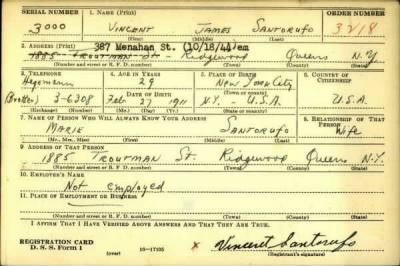 SERIAL NUMBER 1. NAME (Print) ORDER NUMBER
3000 VINCENT JAMES SANTORUFO 3218
(First) (Middle) (Last)
2. ADDRESS (Print) 387 Menahan St. (10/18/44)em
1885 TROUTMAN ST. Ridgewood Queens N.Y.
(Number and street or R. F. D. number) (Town) (County) (State)
3. TELEPHONE 4. AGE IN YEARS 5. PLACE OF BIRTH 6. COUNTRY OF CITIZENSHIP
Hegemann 29 New York City
DATE OF BIRTH (Town or county)
(Brother) 3-6308 Feb 27 1911 N.Y. - U.S.A. U.S.A.
(Exchange) (Number) (Mo.) (Day) (Yr.) (State or country)
7. NAME OF PERSON WHO WILL ALWAYS KNOW YOUR ADDRESS 8. RELATIONSHIP OF THAT PERSON
MARIE SANTORUFO Wife
(Mr., Mrs., Miss) (First) (Middle) (Last)
9. ADDRESS OF THAT PERSON
1885 TROUTMAN St. Ridgewood Queens N.Y.
(Number and street or R. F. D. number) (Town) (County) (State)
10. EMPLOYER'S NAME
Not employed
11. PLACE OF EMPLOYMENT OR BUSINESS
(Number and street or R. F. D. number) (Town) (County) (State)
I AFFIRM THAT I HAVE VERIFIED ABOVE ANSWERS AND THAT THEY ARE TRUE.
REGISTRATION CARD
D. S. S. Form 1 (over) 16-17105 x Vincent Santorufo
(Registrant's signature)